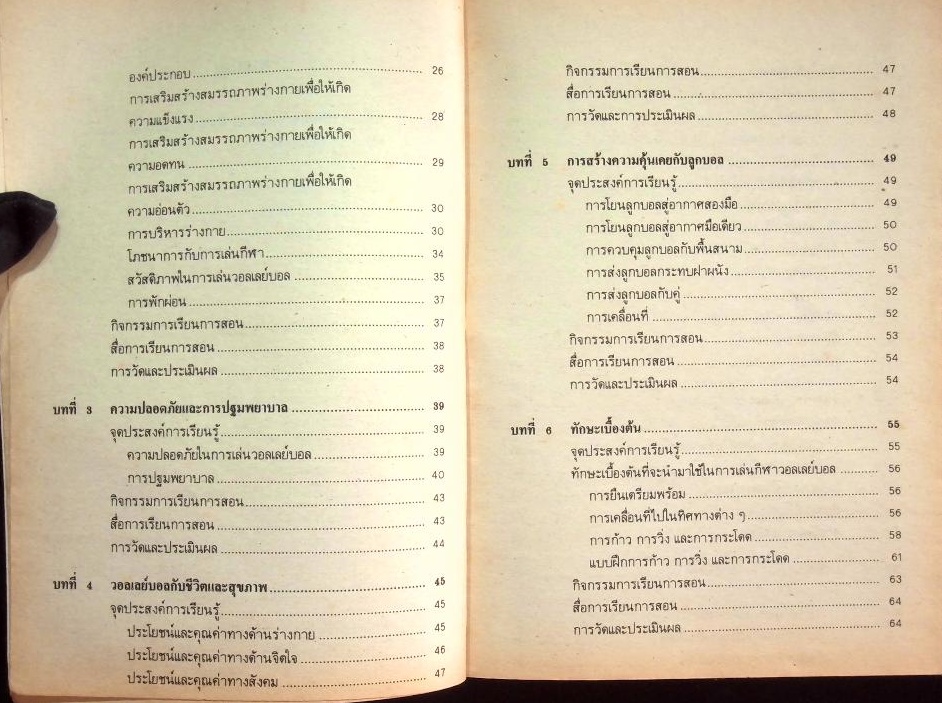 องค์ประกอบ ........ 26
การเสริมสร้างสมรรถภาพร่างกายเพื่อให้เกิด
ความแข็งแรง ........ 28
การเสริมสร้างสมรรถภาพร่างกายเพื่อให้เกิด
ความอดทน ........ 29
การเสริมสร้างสมรรถภาพร่างกายเพื่อให้เกิด
ความอ่อนตัว ........ 30
การบริหารร่างกาย ........ 30
โภชนาการกับการเล่นกีฬา ........ 34
สวัสดิภาพในการเล่นวอลเลย์บอล ........ 35
การพักผ่อน ........ 37
กิจกรรมการเรียนการสอน ........ 37
สื่อการเรียนการสอน ........ 38
การวัดและประเมินผล ........ 38
บทที่ 3 ความปลอดภัยและการปฐมพยาบาล ........ 39
จุดประสงค์การเรียนรู้ ........ 39
ความปลอดภัยในการเล่นวอลเลย์บอล ........ 39
การปฐมพยาบาล ........ 40
กิจกรรมการเรียนการสอน ........ 43
สื่อการเรียนการสอน ........ 43
การวัดและประเมินผล ........ 44
บทที่ 4 วอลเลย์บอลกับชีวิตและสุขภาพ ........ 45
จุดประสงค์การเรียนรู้ ........ 45
ประโยชน์และคุณค่าทางด้านร่างกาย ........ 45
ประโยชน์และคุณค่าทางด้านจิตใจ ........ 46
ประโยชน์และคุณค่าทางสังคม ........ 47
กิจกรรมการเรียนการสอน ........ 47
สื่อการเรียนการสอน ........ 47
การวัดและการประเมินผล ........ 48
บทที่ 5 การสร้างความคุ้นเคยกับลูกบอล ........ 49
จุดประสงค์การเรียนรู้ ........ 49
การโยนลูกบอลสู่อากาศสองมือ ........ 49
การโยนลูกบอลสู่อากาศมือเดียว ........ 50
การควบคุมลูกบอลกับพื้นสนาม ........ 50
การส่งลูกบอลกระทบฝาผนัง ........ 51
การส่งลูกบอลกับคู่ ........ 52
การเคลื่อนที่ ........ 52
กิจกรรมการเรียนการสอน ........ 53
สื่อการเรียนการสอน ........ 54
การวัดและประเมินผล ........ 54
บทที่ 6 ทักษะเบื้องต้น ........ 55
จุดประสงค์การเรียนรู้ ........ 55
ทักษะเบื้องต้นที่จะนำมาใช้ในการเล่นกีฬาวอลเลย์บอล ........ 56
การยืนเตรียมพร้อม ........ 56
การเคลื่อนที่ไปในทิศทางต่าง ๆ ........ 56
การก้าว การวิ่ง และการกระโดด ........ 58
แบบฝึกการก้าว การวิ่ง และการกระโดด ........ 61
กิจกรรมการเรียนการสอน ........ 63
สื่อการเรียนการสอน ........ 64
การวัดและประเมินผล ........ 64